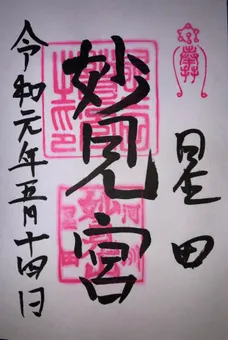 星田
妙見宮
令和元年五月十四日